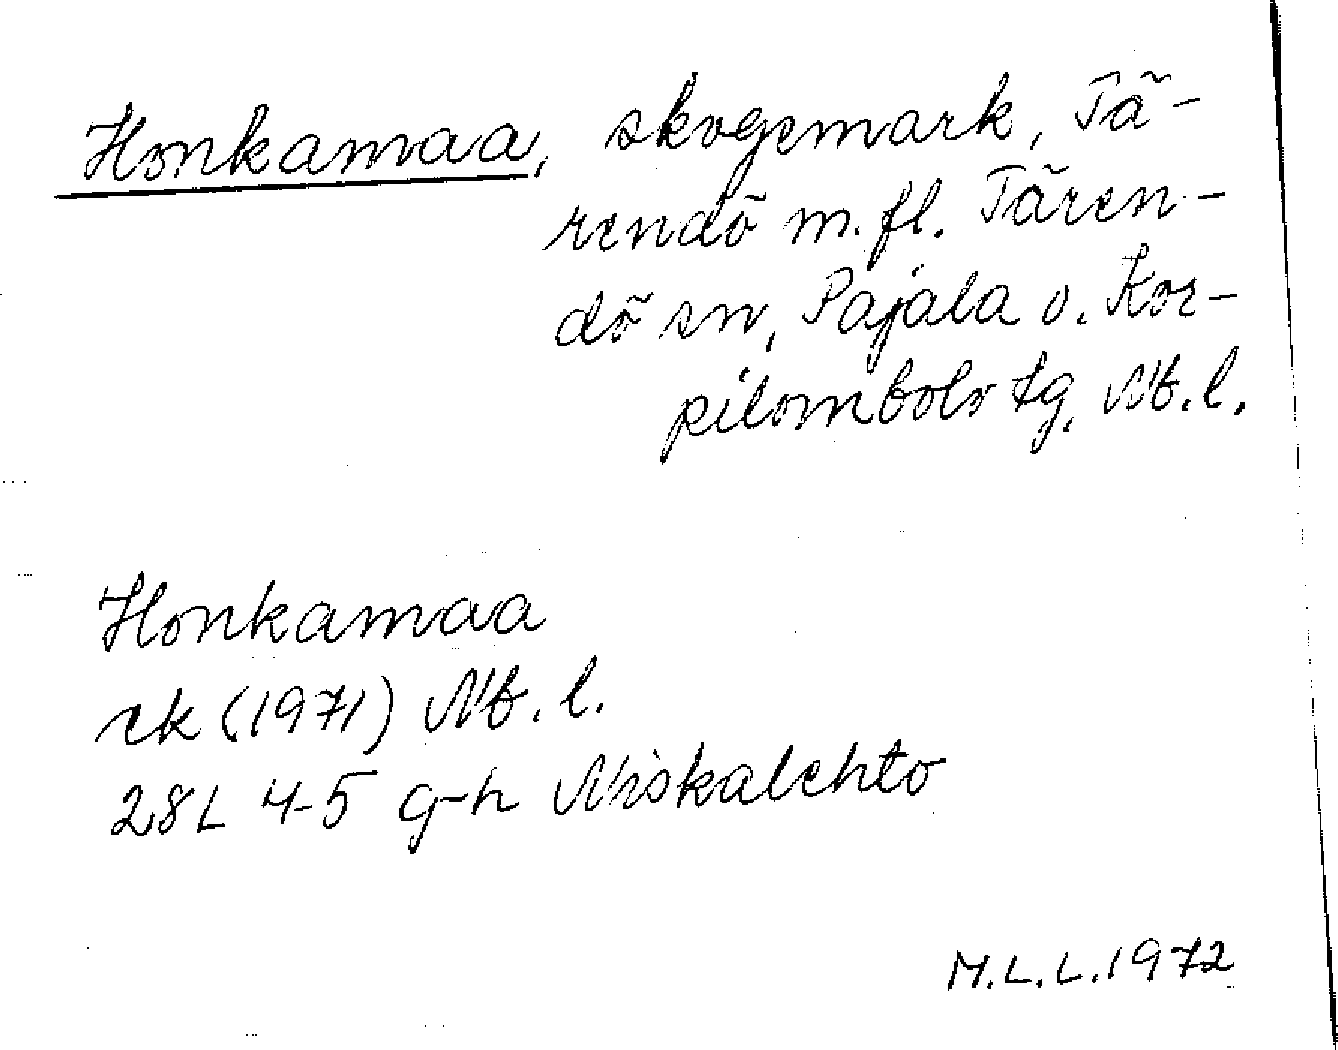 Honkamaa, skogsmark, Tä-
rendö m.fl. Tären-
dö sn, Pajala o. Kor-
pilombolo tg, Nb.l.
Honkamaa
ek (1971) Nb.l.
28L 4-5 g-h Niskalehto
M.L.L. 1972